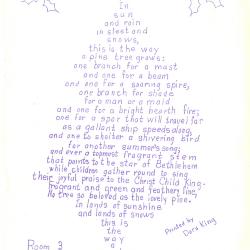 In
sun
and rain
in sleet and
snows,
this is the way
a pine tree grows:
one branch for a mast
and one for a beam
and one for a soaring spire,
one branch for shade
for man or a maid
and one for a bright hearth fire;
and one for a spar that will travel far
as a gallant ship speeds along,
and one to shelter a shivering bird
for another summer's song;
and over a topmost fragrant stem
that points to the star of Bethlehem
while children gather round to sing
their joyful praise to the Christ Child King-
Fragrant and green and feathery fine,
No tree so beloved as the lovely pine.
In lands of sunshine
and lands of snows
this is
the
way
a
Room 3
Printed by
Dora King